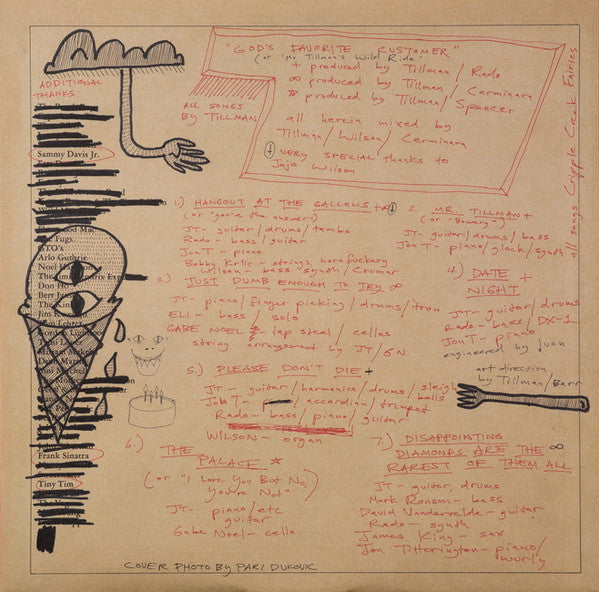 "GOD'S FAVORITE CUSTOMER"
(or "Mr. Tillman's Wild Ride")
+ produced by Tillman/Rado
∞ produced by Tillman/Cerminara
* produced by Tillman/Spencer
all herein mixed by
Tillman/Wilson/Cerminara
VERY SPECIAL thanks to
JoJo Wilson
ALL SONGS
BY TILLMAN
all songs Cripple Creek Fairies
ADDITIONAL
THANKS:
Sammy Davis Jr.
Mac
Fugs
GTO's
Arlo Guthrie
Noel
Jimi
Don Ho
Bert
The Kin
Jim
Trini Lopez
Miriam
Dean
Joni Mitchel
Frank Sinatra
Tiny Tim
1.) HANGOUT AT THE GALLOWS +
(or "you're the answer")
JT- guitar/drums/tambo
Rado- bass/guitar
Jon T- piano
Bobby Krlic- strings, horn fockery
Wilson- bass synth/Crumar
2. MR. TILLMAN +
JT- guitar/drums/bass
Jon T- piano/glock/synth
3.) JUST DUMB ENOUGH TO TRY ∞
JT- piano/finger picking/drums/tron
ELI- bass/solo
GABE NOEL- lap steel/cellos
string arrangement by JT/GN
4.) DATE +
NIGHT
JT- guitar/drums
Rado- bass/DX-1
Jon T- piano
engineered by Juan
5.) PLEASE DON'T DIE +
JT- guitar/harmonica/drums/sleigh
bells
Jon T- /accordian/trumpet
Rado- bass/piano/guitar
WILSON- organ
art direction
by Tillman/Barr
6.) THE
PALACE *
(or "I Love You But No,
You're Not")
JT- piano/etc
guitar
Gabe Noel- cello
7.) DISAPPOINTING
DIAMONDS ARE THE ∞
RAREST OF THEM ALL
JT- guitar, drums
Mark Ronson- bass
David Vandervelde- guitar
Rado- synth
James King- sax
Jon Titterington- piano/
wurly
COVER PHOTO BY PARI DUKOVIC